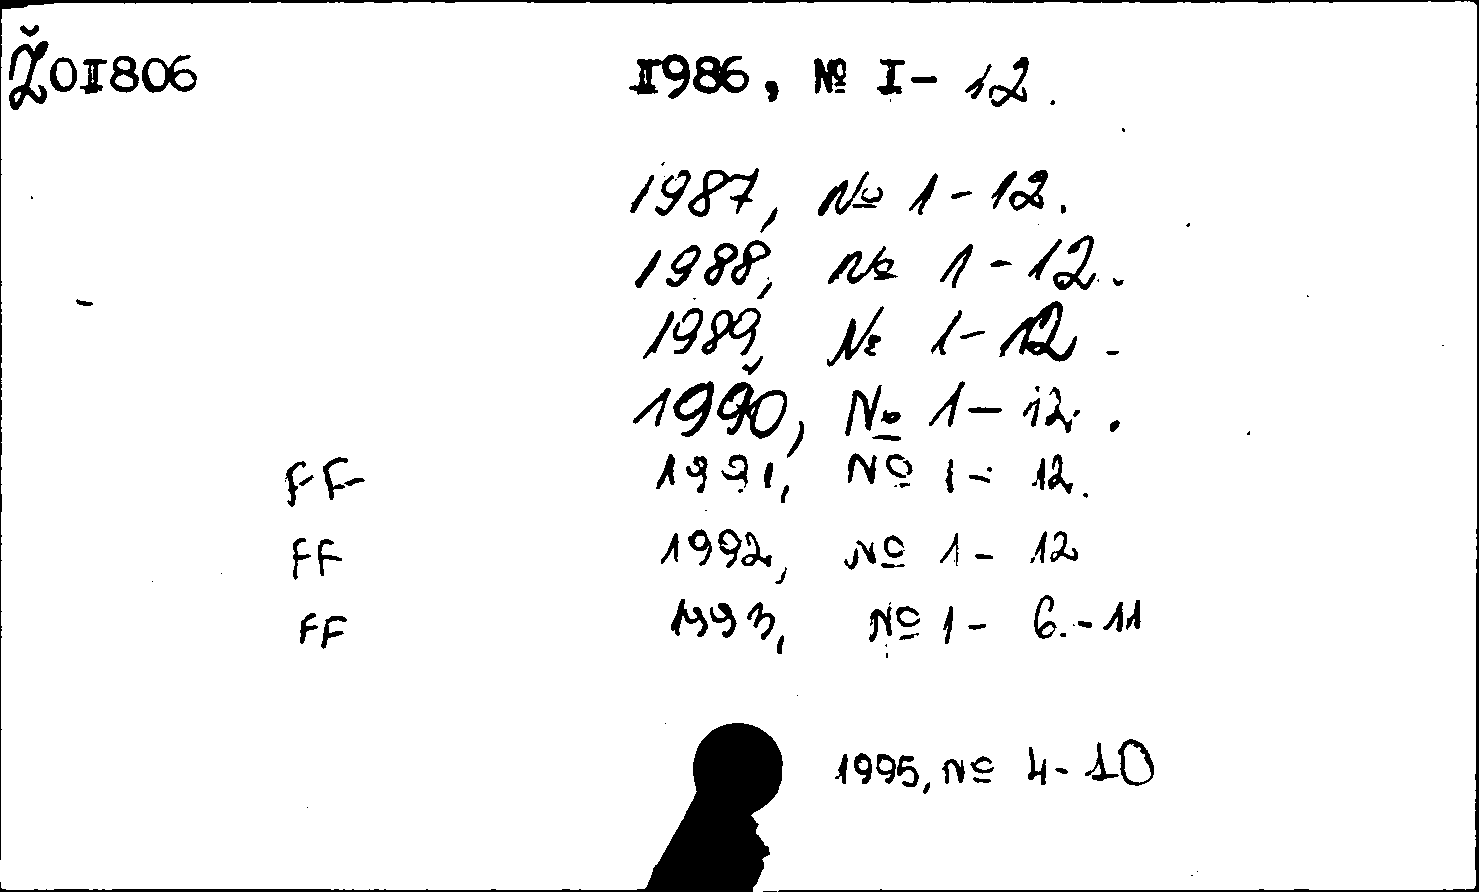 Ž0I806 I986, № I- 12.
1987, № 1-12.
1988, № 1-12.
1989, № 1-12.
1990, № 1-12.
FF 1991, № 1- 12.
FF 1992, № 1- 12
FF 1993, № 1- 6.-11
1995, № 4-10